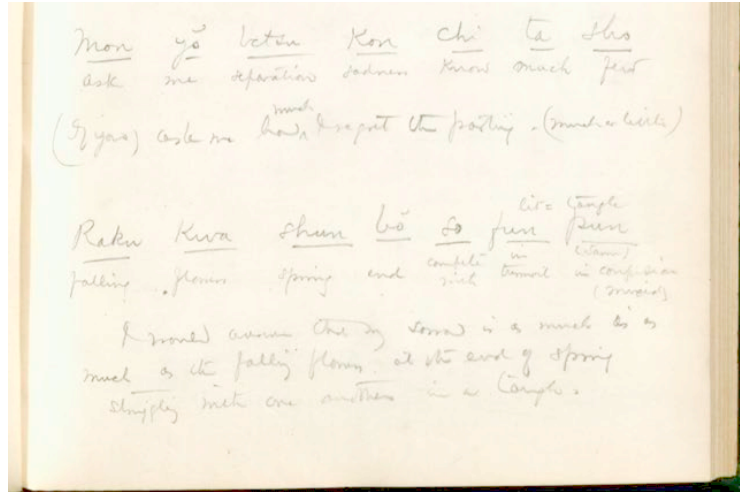 Mon yō betsu Kon chi ta sho
ask me separation sadness know much few
much
(If you) ask me how I regret the parting. (much or little)
lit = tangle
Raku Kwa shun bō so fun pun
compete in
falling flowers spring end with turmoil in confusion
I would answer that my sorrow is as much as as
much as the falling flowers at the end of spring
struggling with one another in a tangle.